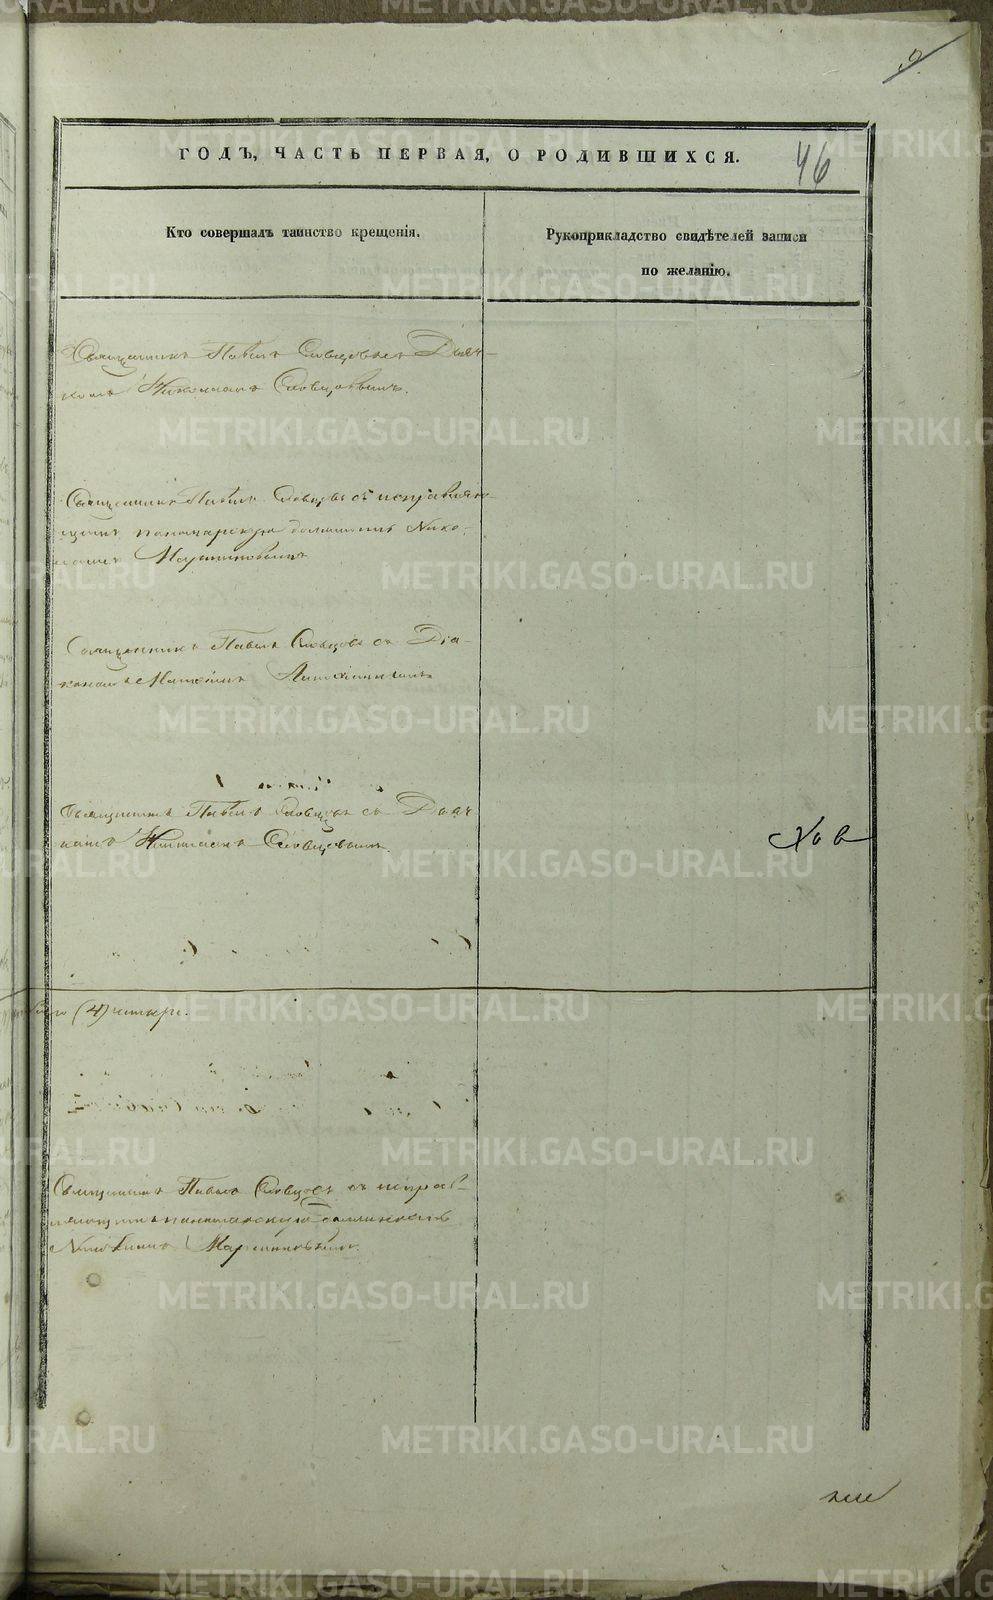 9
ГОДЪ, ЧАСТЬ ПЕРВАЯ, О РОДИВШИХСЯ.
46
Кто совершалъ таинство крещенія.
Рукоприкладство свидѣтелей записи
по желанію.
Священникъ Павелъ Словцовъ съ Дьяч-
комъ Николаемъ Словцовымъ.
Священникъ Павелъ Словцовъ съ исправляю-
щимъ пономарскую должность Нико-
лаемъ Мартиновымъ
Священникъ Павелъ Словцовъ съ Діа-
кономъ
Священникъ Павелъ Словцовъ съ Дьяч
комъ Николаемъ Словцовымъ.
(4) четыре.
Священникъ Павелъ Словцовъ съ исправ-
ляющимъ пономарскую должность
Мартиновымъ.
METRIKI.GASO-URAL.RU